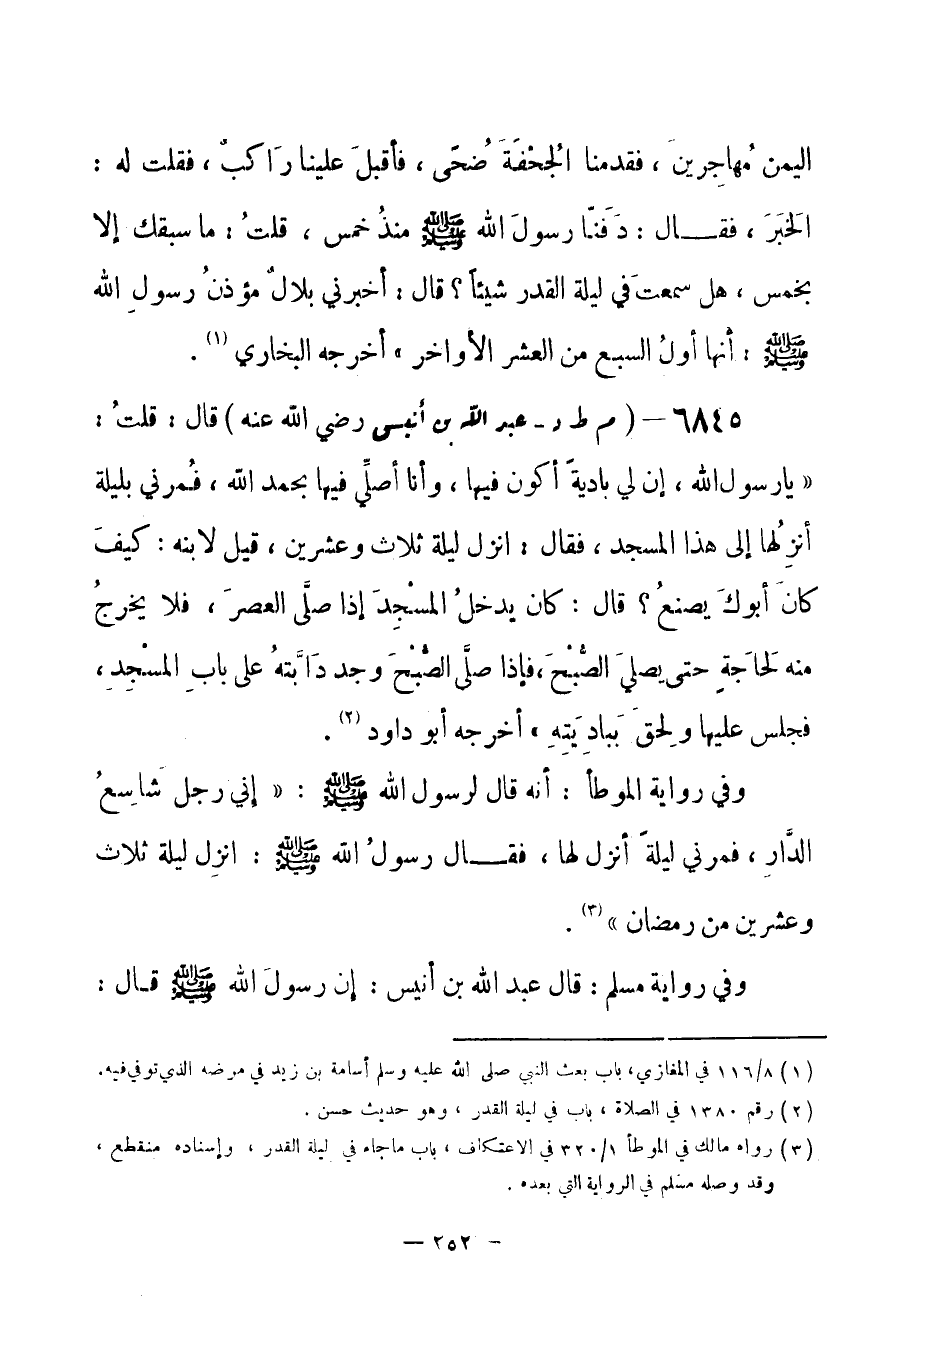 اليمن مُهاجِرينَ ، فقدمنا الجُحْفَةَ ضُحّى ، فأقبلَ علينا رَاكبٌ ، فقلت له :
الخَبَرَ ، فقـــال : دَفَنّا رسولَ الله ﷺ منذُ خمس ، قلتُ : ما سبقك إلا
بخمس ، هل سمعتَ في ليلة القدر شيئاً ؟ قال : أخبرني بلالٌ مؤذنُ رسولِ الله
ﷺ : أنها أولُ السبع من العشر الأواخر » أخرجه البخاري (١) .
٦٨٤٥ – ( م ط د - عبد الله بن أنيس رضي الله عنه ) قال : قلتُ :
« يارسول الله ، إن لي باديةً أكون فيها ، وأنا أصلِّي فيها بحمد الله ، فمُرني بليلة
أنزِلُها إلى هذا المسجد ، فقال : انزل ليلة ثلاث وعشرين ، قيل لابنه : كيفَ
كانَ أبوكَ يصنعُ ؟ قال : كان يدخلُ المسْجِدَ إذا صلَّى العصرَ ، فلا يخرجُ
منه لحَاجةٍ حتى يصليَ الصُّبْحَ ، فإذا صلَّى الصُّبْحَ وجد دَابَّتهُ على بابِ المسْجِدِ ،
فجلس عليها ولحِقَ ببادِيَتِهِ » أخرجه أبو داود (٢) .
وفي رواية الموطأ : أنه قال لرسول الله ﷺ : « إني رجل شَاسِعُ
الدَّارِ ، فمرني ليلةً أنزل لها ، فقـــال رسولُ الله ﷺ : انزِل ليلة ثلاث
وعشرين من رمضان » (٣) .
وفي رواية مسلم : قال عبد الله بن أنيس : إن رسولَ الله ﷺ قـال :
(١) ١١٦/٨ في المغازي، باب بعث النبي صلى الله عليه وسلم أسامة بن زيد في مرضه الذي توفي فيه.
(٢) رقم ١٣٨٠ في الصلاة ، باب في ليلة القدر ، وهو حديث حسن .
(٣) رواه مالك في الموطأ ٣٢٠/١ في الاعتكاف ، باب ماجاء في ليلة القدر ، وإسناده منقطع ،
وقد وصله مسلم في الرواية التي بعده .
- ٢٥٢ —